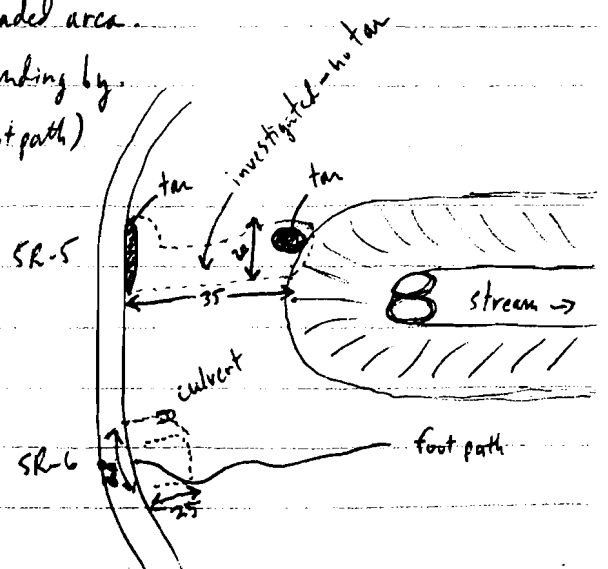 nded area.
nding by.
t path)
investigated - no tar
tar
tar
SR-5
20
35
stream →
culvert
20
SR-6
foot path
25